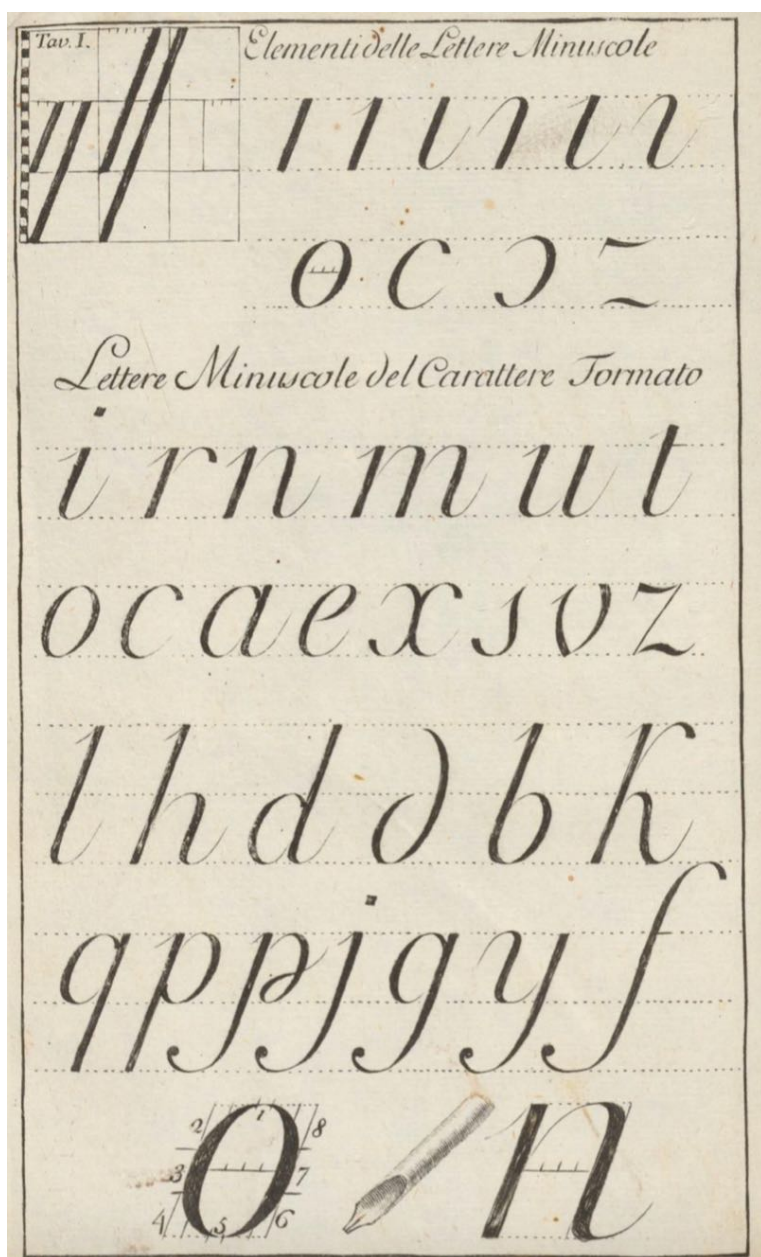 Tav. I.
Elementi delle Lettere Minuscole
ı ı ı ı ı ı
o c ɔ z
Lettere Minuscole del Carattere Formato
i r n m u t
o c a e x s v z
l h d ∂ b k
q p p j g y ſ
1 2 3 4 5 6 7 8
O n